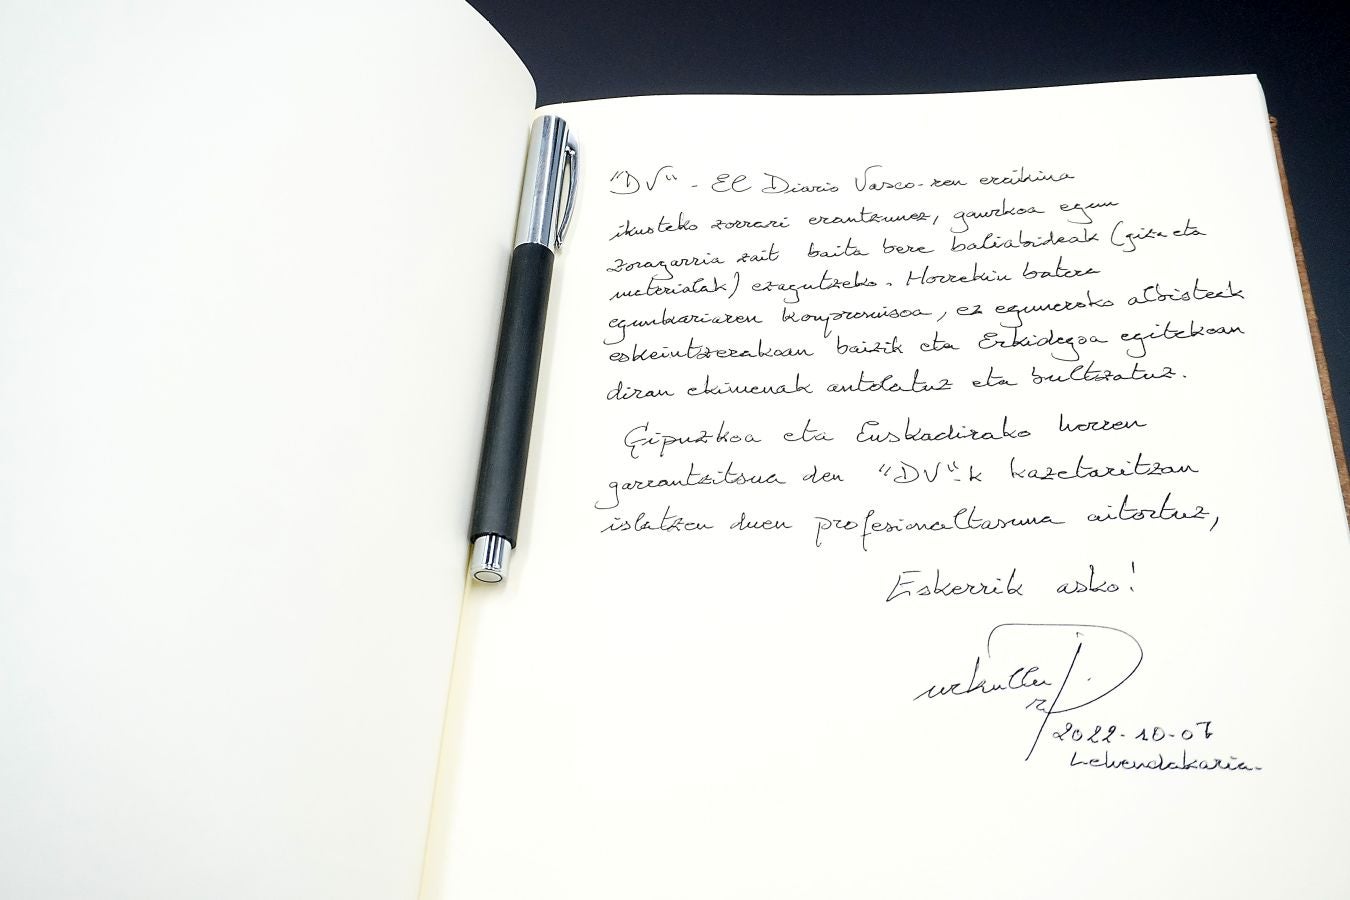 "DV" - El Diario Vasco-ren eraikina
ikusteko zorrari erantzunez, gaurkoa egun
zoragarria zait baita bere baliabideak (giza eta
materialak) ezagutzeko. Horrekin batera
egunkariaren konpromisoa, ez eguneroko albisteak
eskeintzerakoan baizik eta Erkidegoa egitekoan
diran ekimenak antolatuz eta bultzatuz.
Gipuzkoa eta Euskadirako horren
garrantzitsua den "DV"-k kazetaritzan
islatzen duen profesionaltasuna aitortuz,
Eskerrik asko!
urkullu
2022-10-07
Lehendakaria.